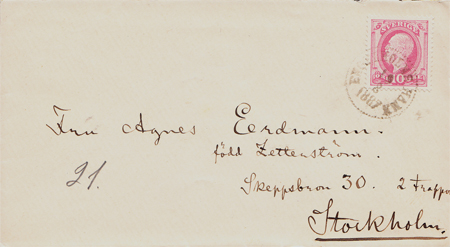 SVERIGE
10
Fru Agnes Eerdmann.
född Zetterström.
21.
Skeppsbron 30. 2 Trappor
Stockholm.